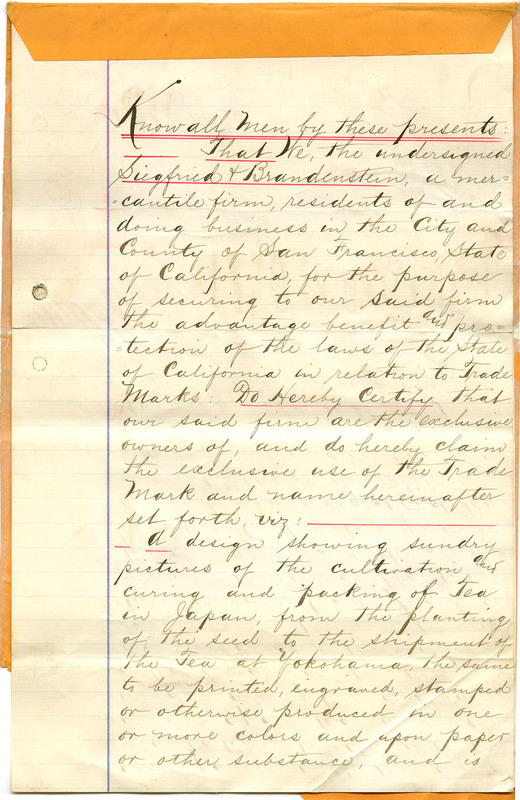 Know all Men by these presents:
That We, the undersigned
Siegfried & Brandenstein, a mer=
=cantile firm, residents of and
doing business in the City and
County of San Francisco, State
of California, for the purpose
of securing to our said firm
the advantage benefit and pro=
=tection of the laws of the State
of California in relation to Trade
Marks: Do Hereby Certify that
our said firm are the exclusive
owners of, and do hereby claim
the exclusive use of the Trade
Mark and name hereinafter
set forth, viz:
A design showing sundry
pictures of the cultivation and
curing and packing of Tea
in Japan, from the planting
of the seed to the shipment of
the Tea at Yokohama, the same
to be printed, engraved, stamped
or otherwise produced in one
or more colors and upon paper
or other substance, and is